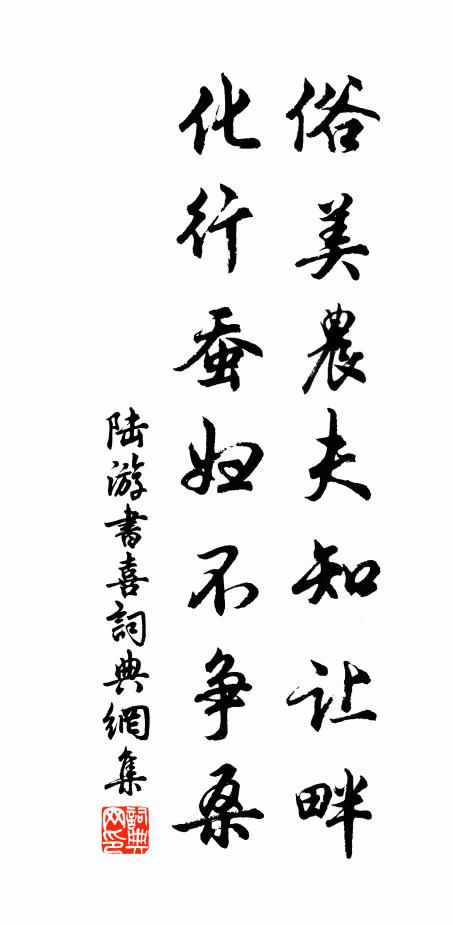 俗美農夫知让畔
化行蚕妇不争桑
陆游書喜詞典網集
詞典网印